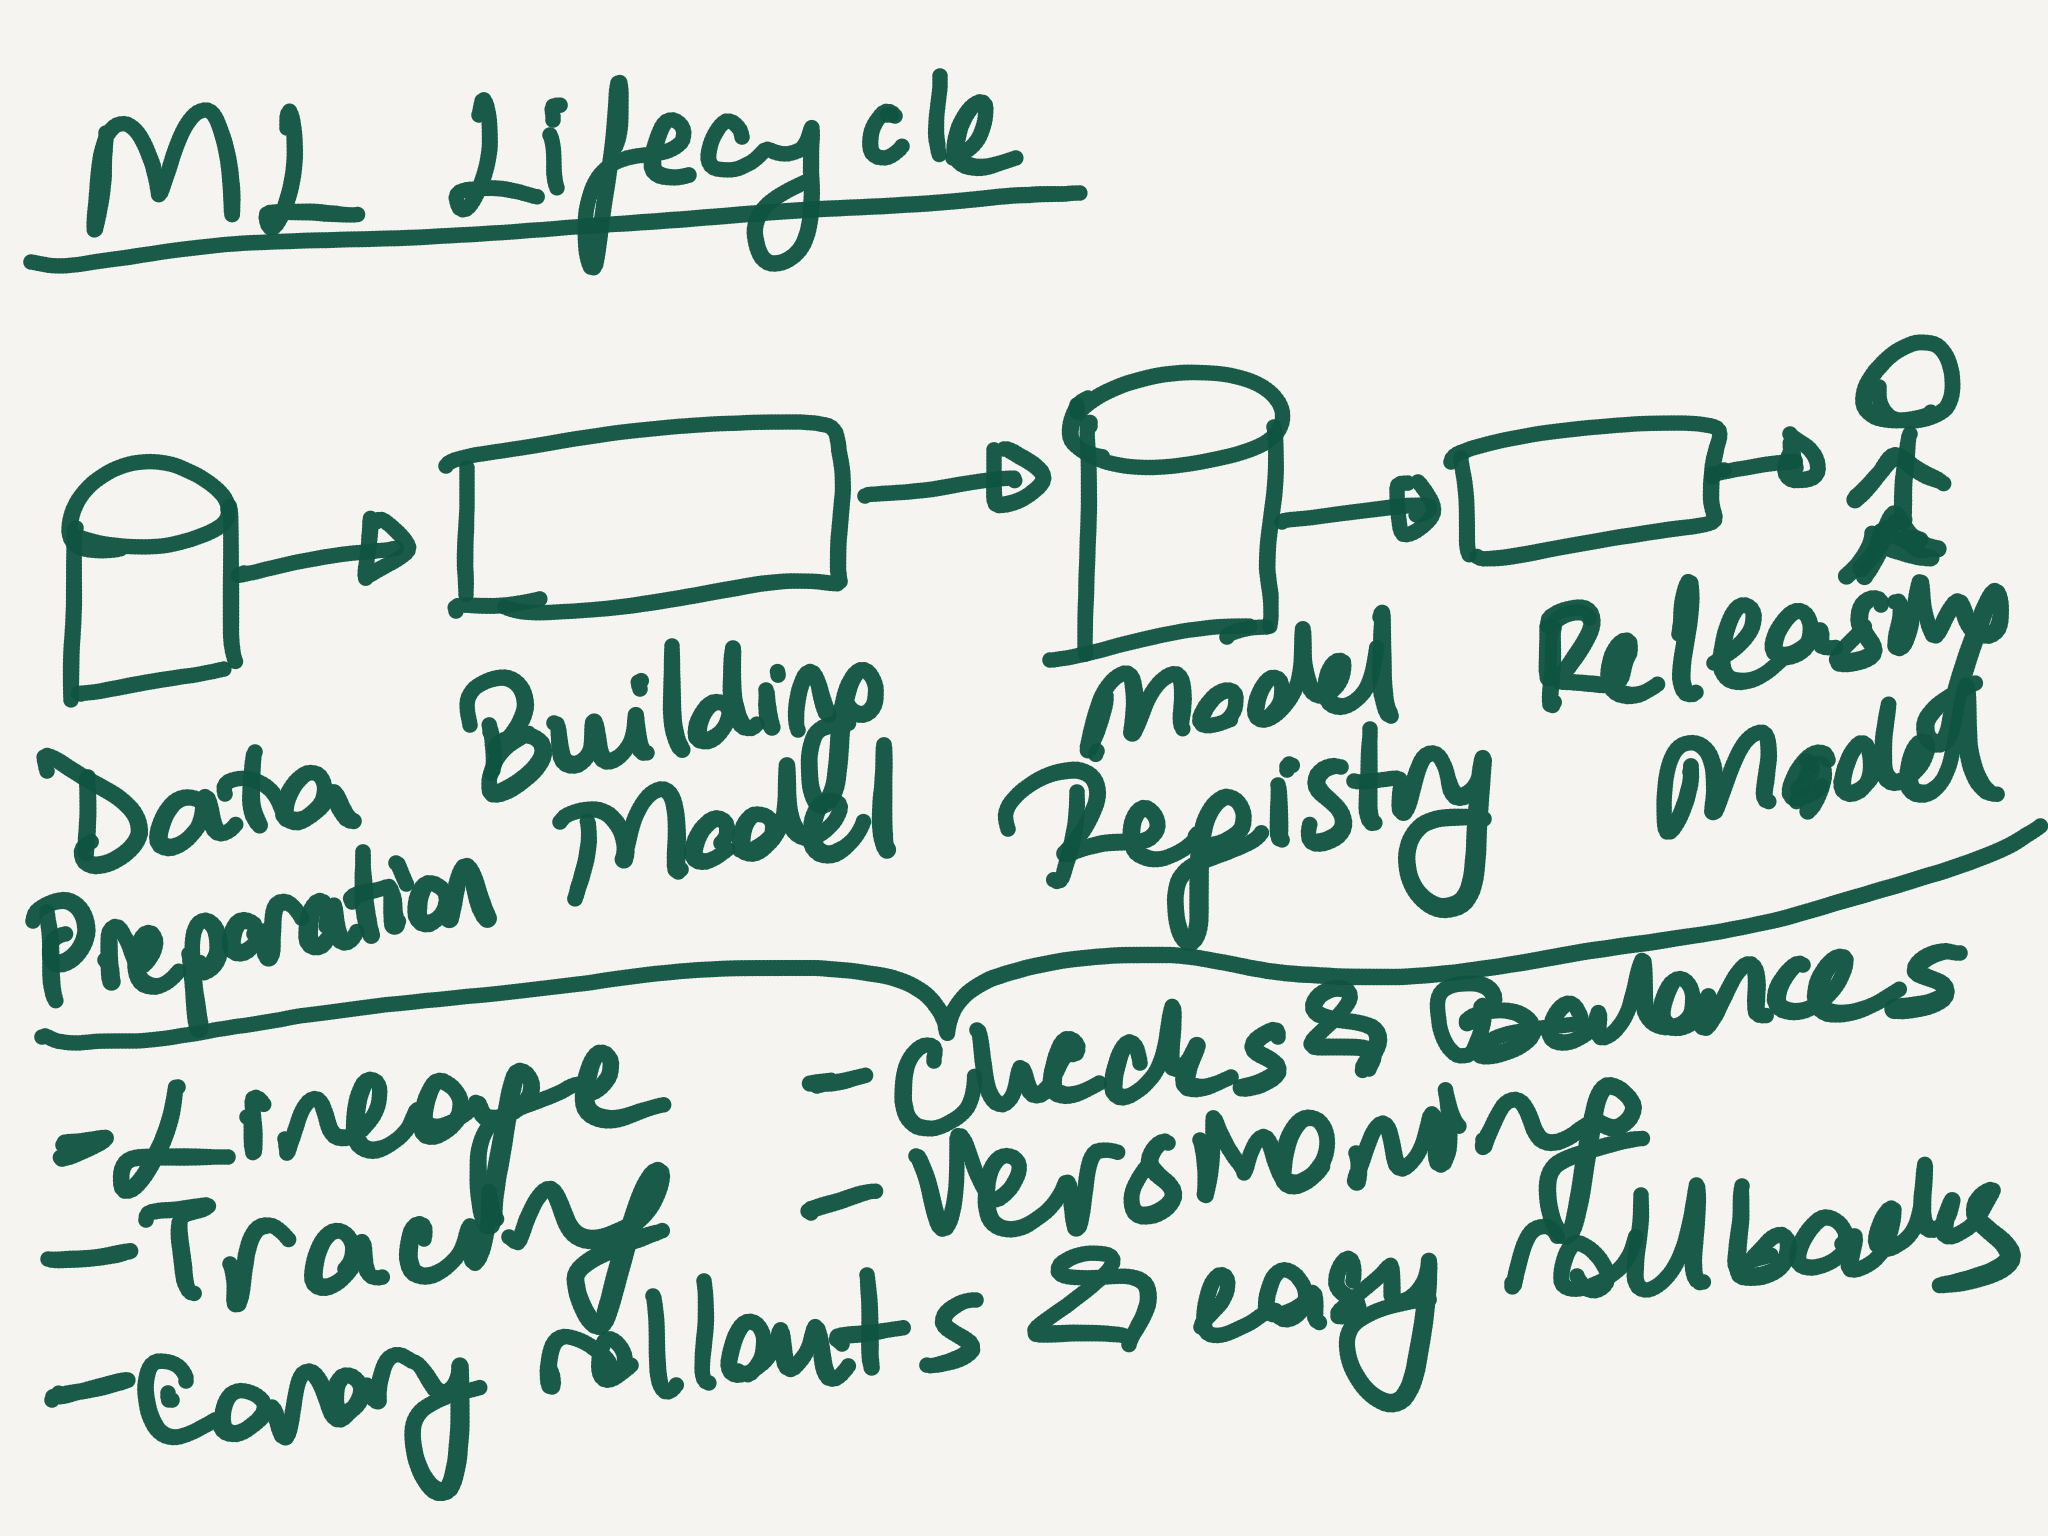 ML Lifecycle
Data
Preparation
Building
Model
Model
Registry
Releasing
Model
- Lineage
- Tracing
- Canary rollouts & easy rollbacks
- Checks & Balances
- Versioning